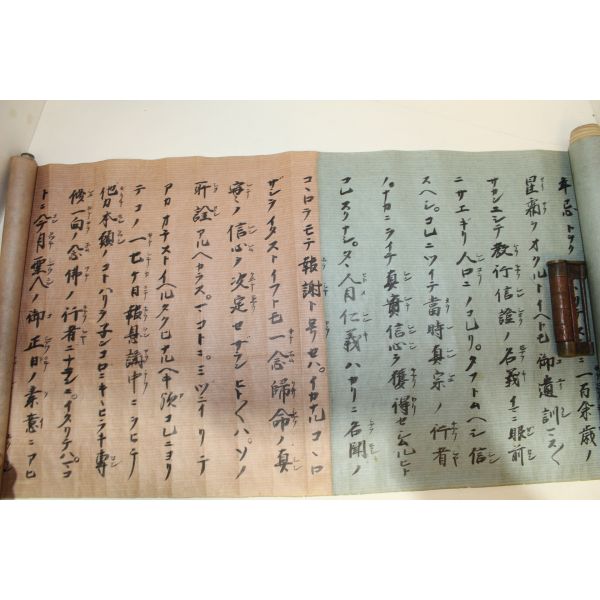 年忌トツ ニ一百余歳ノ
星霜ヲオクルトイヘトモ御遺訓マス〱
サカンニシテ教行信證ノ名義イマニ眼前
ニサエギリ人口ニノコレリ。タフトムヘシ信
スヘシ。コレニツイテ當時真宗ノ行者
ノナカニヲイテ真實信心ヲ獲得セシムルヒト
コレスクナシ。タヽ人目仁義ハカリニ名聞ノ
コヽロヲモテ報謝ト号セハ。イカナルコヽロ
ザシヲイタストイフトモ一念歸命ノ真
實ノ信心ヲ決定セザランヒト〲ハ。ソノ
所詮アルヘカラス。マコトニミツニイリテ
アカオチストイヘルタクヒナルヘキ歟コレニヨリ
テコノ一七ケ日報恩講中ニヲヒテ
他力本願ノコトハリヲネンコロニキヽヒラキテ専
修一向ノ念佛ノ行者ニナランニイタリテハマコ
トニ今月聖人ノ御正日ノ素意ニアヒ